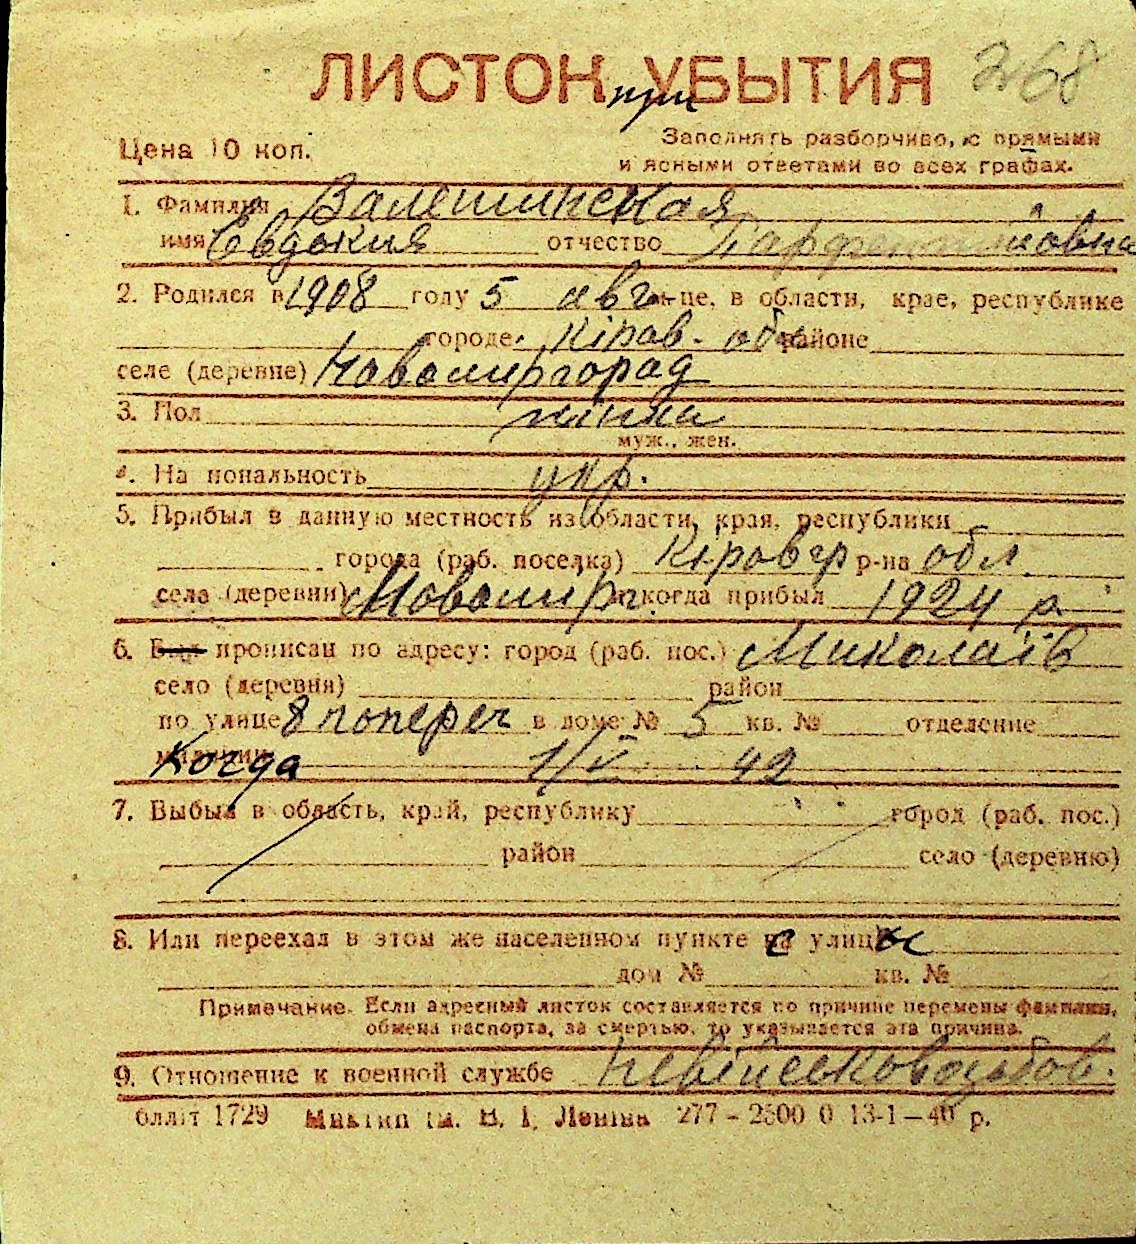 ЛИСТОК УБЫТИЯ 268
при
Цена 10 коп. Заполнять разборчиво, с прямыми
и ясными ответами во всех графах.
1. Фамилия
имя Евдокия отчество
2. Родился в 1908 году 5 авг. м-це, в области, крае, республике
городе Кіров. обл. районе
селе (деревне) Новомиргород
3. Пол жінка
муж., жен.
4. Национальность укр.
5. Прибыл в данную местность из области, края, республики
города (раб. поселка) Кіровгр р-на обл.
села (деревни) Новомирг. и когда прибыл 1924 р.
6. Был прописан по адресу: город (раб. пос.) Миколаїв
село (деревня) район
по улице 8 попереч в доме № 5 кв. № отделение
милиции Когда 1/V 42
7. Выбыл в область, край, республику город (раб. пос.)
район село (деревню)
8. Или переехал в этом же населенном пункте с улицы
дом № кв. №
Примечание. Если адресный листок составляется по причине перемены фамилии,
обмена паспорта, за смертью, то указывается эта причина.
9. Отношение к военной службе невійськовозобов.
1729 В. І. Леніна 277 – 2500 0 13-1 – 40 р.